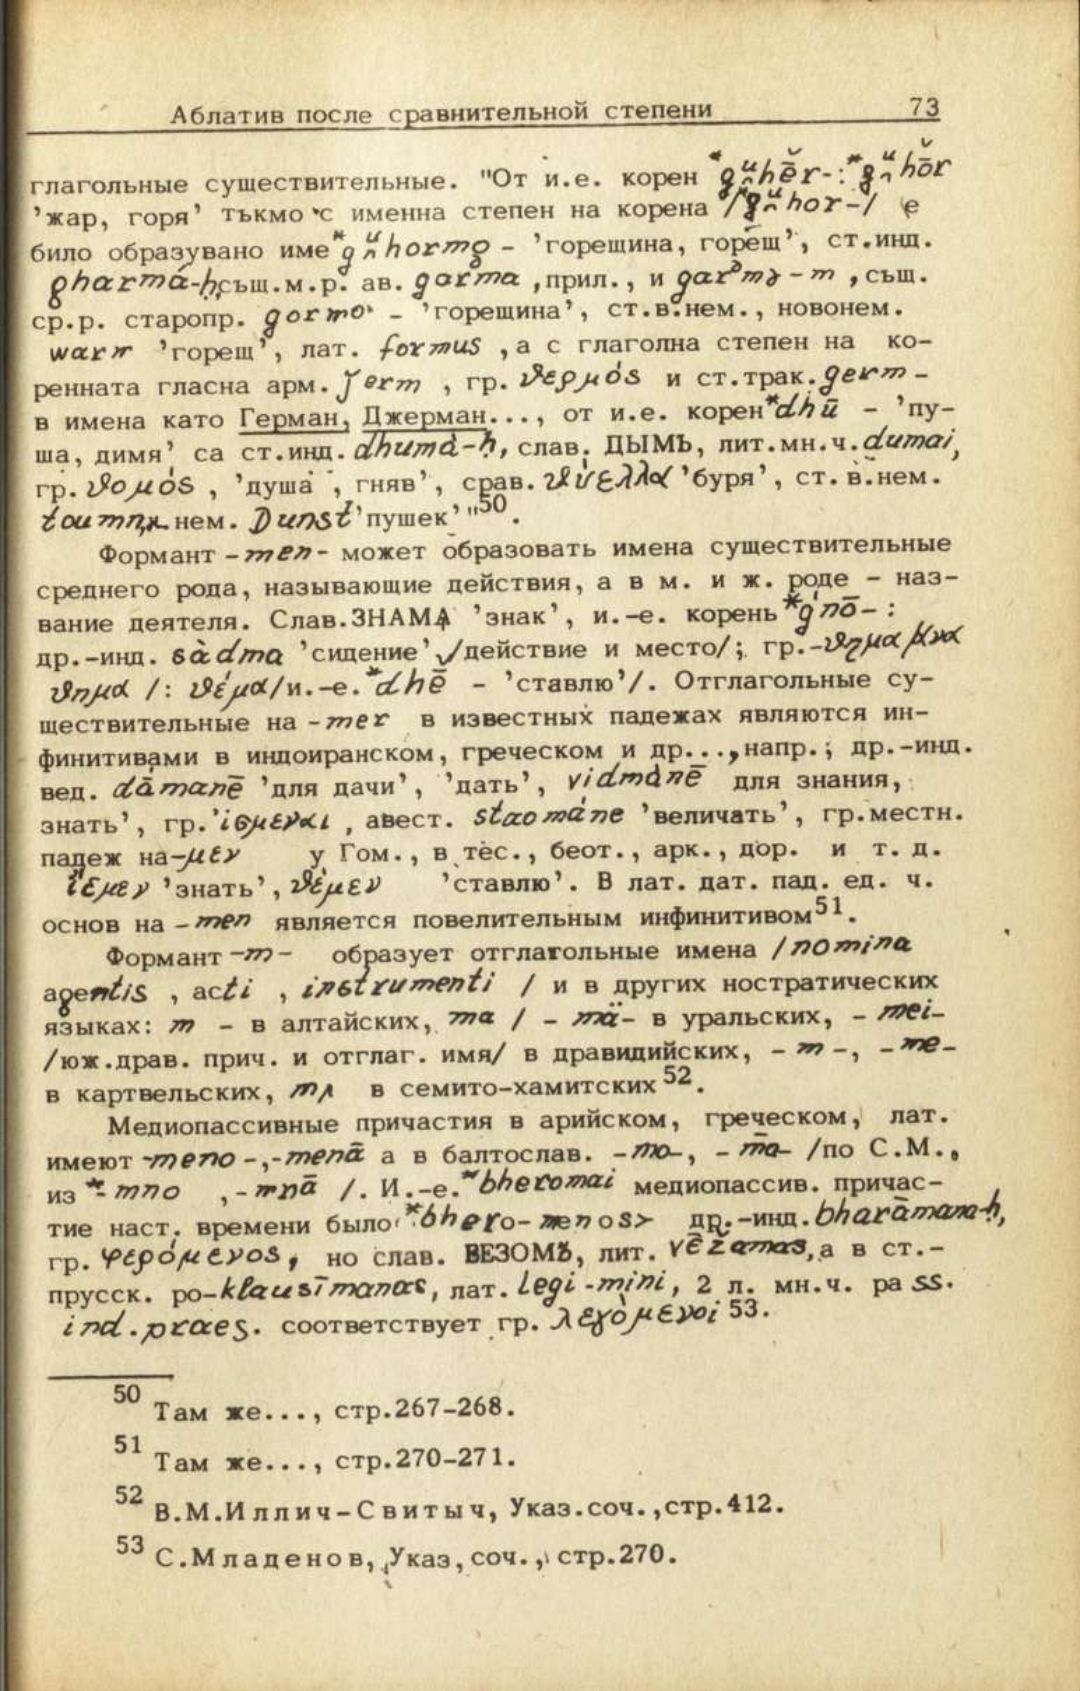 Аблатив после сравнительной степени 73
глагольные существительные. "От и.е. корен
'жар, горя' тъкмо с именна степен на корена е
било образувано име - 'горещина, горещ', ст.инд.
gharmá-ḥ, същ.м.р. ав. garma, прил., и същ.
ср.р. старопр. gormo - 'горещина', ст.в.нем., новонем.
warm 'горещ', лат. formus, а с глаголна степен на ко-
ренната гласна арм. ǰerm, гр. ϑερμós и ст.трак. germ-
в имена като Герман, Джерман..., от и.е. корен *dhū - 'пу-
ша, димя' са ст.инд. dhumá-ḥ, слав. ДЫМЬ, лит.мн.ч. dumai,
гр. ϑομós, 'душа', гняв', срав. ϑύελλα 'буря', ст. в.нем.
нем. Dunst 'пушек'"50.
Формант -men- может образовать имена существительные
среднего рода, называющие действия, а в м. и ж. роде - наз-
вание деятеля. Слав. ЗНАМѦ 'знак', и.-е. корень *gnō- :
др.-инд. sàdma 'сидение' /действие и место/; гр. -ϑημα μνα
ϑημα /: ϑέμα/и.-е. *dhē - 'ставлю'/. Отглагольные су-
ществительные на -mer в известных падежах являются ин-
финитивами в индоиранском, греческом и др..., напр.; др.-инд.
вед. dāmanē 'для дачи', 'дать', vidmànē для знания,
знать', гр. авест. staománe 'величать', гр.местн.
падеж на -μεν у Гом., в тес., беот., арк., дор. и т. д.
'знать', ϑέμεν 'ставлю'. В лат. дат. пад. ед. ч.
основ на -men является повелительным инфинитивом51.
Формант -m- образует отглагольные имена /nomina
agentis, acti, instrumenti / и в других ностратических
языках: m - в алтайских, ma / - mä- в уральских, - mei-
/юж.драв. прич. и отглаг. имя/ в дравидийских, - m -, - me-
в картвельских, m в семито-хамитских52.
Медиопассивные причастия в арийском, греческом, лат.
имеют -meno-, -menā а в балтослав. -mo-, - mā- /по С.М.,
из *- mno , - mnā /. И.-е. *bheromai медиопассив. причас-
тие наст. времени было *bhero-menos> др.-инд. bharāmana-ḥ,
гр. φερόμενos, но слав. ВЕЗОМЪ, лит. vēžamas, а в ст.-
прусск. po-klausīmanas, лат. legi-mini, 2 л. мн.ч. pass.
ind.praes. соответствует гр. λεγόμενοi 53.
50 Там же..., стр.267-268.
51 Там же..., стр.270-271.
52 В.М.Иллич-Свитыч, Указ.соч.,стр.412.
53 С.Младенов, Указ, соч., стр.270.